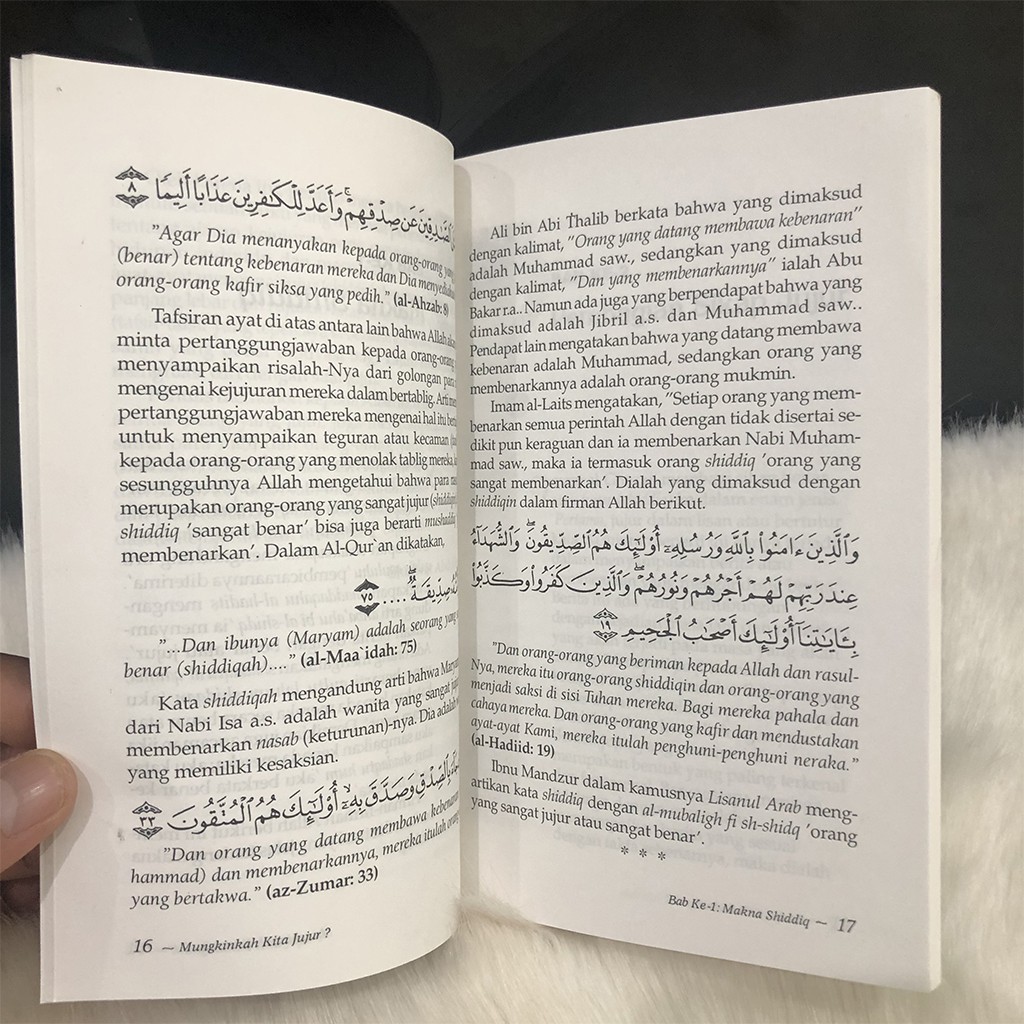 عَن صِدْقِهِمْ ۚ وَأَعَدَّ لِلْكَٰفِرِينَ عَذَابًا أَلِيمًا ٨
"Agar Dia menanyakan kepada orang-orang yang
(benar) tentang kebenaran mereka dan Dia
orang-orang kafir siksa yang pedih." (al-Ahzab: 8)
Tafsiran ayat di atas antara lain bahwa Allah
minta pertanggungjawaban kepada orang-orang
menyampaikan risalah-Nya dari golongan para
mengenai kejujuran mereka dalam bertablig. Arti
pertanggungjawaban mereka mengenai hal itu
untuk menyampaikan teguran atau kecaman
kepada orang-orang yang menolak tablig mereka,
sesungguhnya Allah mengetahui bahwa para
merupakan orang-orang yang sangat jujur
shiddiq 'sangat benar' bisa juga berarti
membenarkan'. Dalam Al-Qur`an dikatakan,
صِدِّيقَةٌ ۖ .... ٧٥
"...Dan ibunya (Maryam) adalah seorang yang
benar (shiddiqah)...." (al-Maa`idah: 75)
Kata shiddiqah mengandung arti bahwa
dari Nabi Isa a.s. adalah wanita yang sangat
membenarkan nasab (keturunan)-nya. Dia
yang memiliki kesaksian.
بِٱلصِّدْقِ وَصَدَّقَ بِهِۦٓ ۙ أُو۟لَٰٓئِكَ هُمُ ٱلْمُتَّقُونَ ٣٣
"Dan orang yang datang membawa
hammad) dan membenarkannya, mereka itulah
yang bertakwa." (az-Zumar: 33)
16 ~ Mungkinkah Kita Jujur ?
Ali bin Abi Thalib berkata bahwa yang dimaksud
dengan kalimat, "Orang yang datang membawa kebenaran"
adalah Muhammad saw., sedangkan yang dimaksud
dengan kalimat, "Dan yang membenarkannya" ialah Abu
Bakar r.a.. Namun ada juga yang berpendapat bahwa yang
dimaksud adalah Jibril a.s. dan Muhammad saw..
Pendapat lain mengatakan bahwa yang datang membawa
kebenaran adalah Muhammad, sedangkan orang yang
membenarkannya adalah orang-orang mukmin.
Imam al-Laits mengatakan, "Setiap orang yang mem-
benarkan semua perintah Allah dengan tidak disertai se-
dikit pun keraguan dan ia membenarkan Nabi Muham-
mad saw., maka ia termasuk orang shiddiq 'orang yang
sangat membenarkan'. Dialah yang dimaksud dengan
shiddiqin dalam firman Allah berikut.
وَٱلَّذِينَ ءَامَنُوا۟ بِٱللَّهِ وَرُسُلِهِۦٓ أُو۟لَٰٓئِكَ هُمُ ٱلصِّدِّيقُونَ ۖ وَٱلشُّهَدَآءُ
عِندَ رَبِّهِمْ لَهُمْ أَجْرُهُمْ وَنُورُهُمْ ۖ وَٱلَّذِينَ كَفَرُوا۟ وَكَذَّبُوا۟
بِـَٔايَٰتِنَآ أُو۟لَٰٓئِكَ أَصْحَٰبُ ٱلْجَحِيمِ ١٩
"Dan orang-orang yang beriman kepada Allah dan rasul-
Nya, mereka itu orang-orang shiddiqin dan orang-orang yang
menjadi saksi di sisi Tuhan mereka. Bagi mereka pahala dan
cahaya mereka. Dan orang-orang yang kafir dan mendustakan
ayat-ayat Kami, mereka itulah penghuni-penghuni neraka."
(al-Hadiid: 19)
Ibnu Mandzur dalam kamusnya Lisanul Arab meng-
artikan kata shiddiq dengan al-mubaligh fi sh-shidq 'orang
yang sangat jujur atau sangat benar'.
* * *
Bab Ke-1: Makna Shiddiq — 17